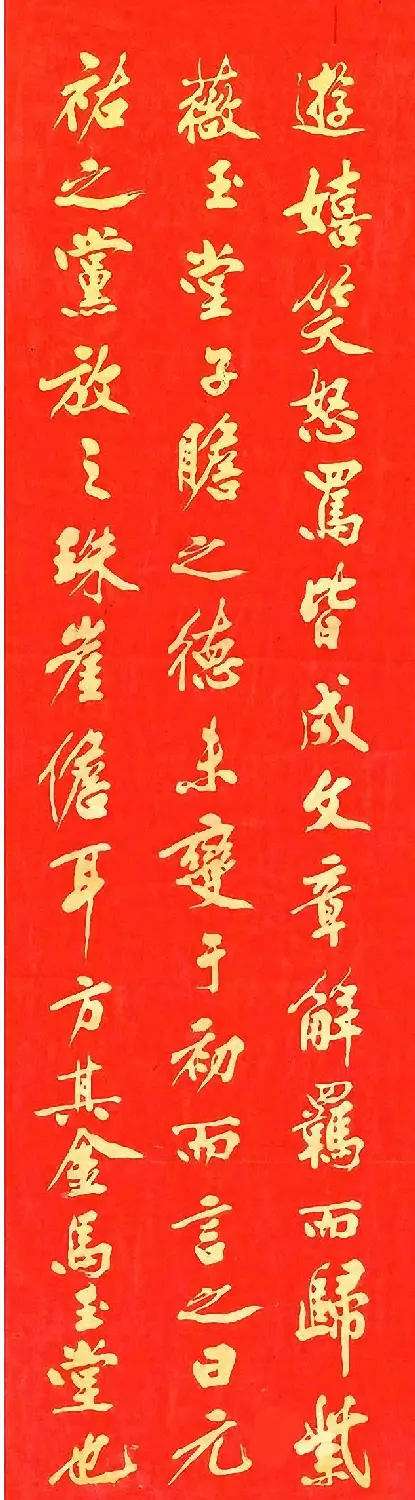 遊嬉笑怒罵皆成文章解羈而歸紫
薇玉堂子瞻之德未變于初而言之曰元
祐之黨放之珠崖儋耳方其金馬玉堂也